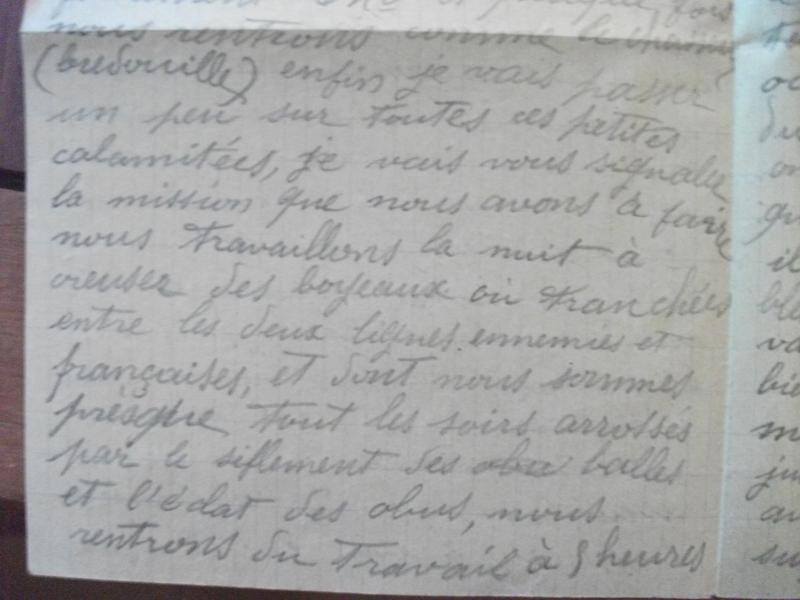 nous rentrons comme le chasseur
(bredouille) enfin je vais passer
un peu sur toutes ces petites
calamitées, je vais vous signaler
la mission que nous avons à faire
nous travaillons la nuit à
creuser des boyeaux ou tranchées
entre les deux lignes ennemies et
françaises, et dont nous sommes
présque tout les soirs arrossés
par le siflement des obu balles
et l'éclat des obus, nous
rentrons du travail à heures